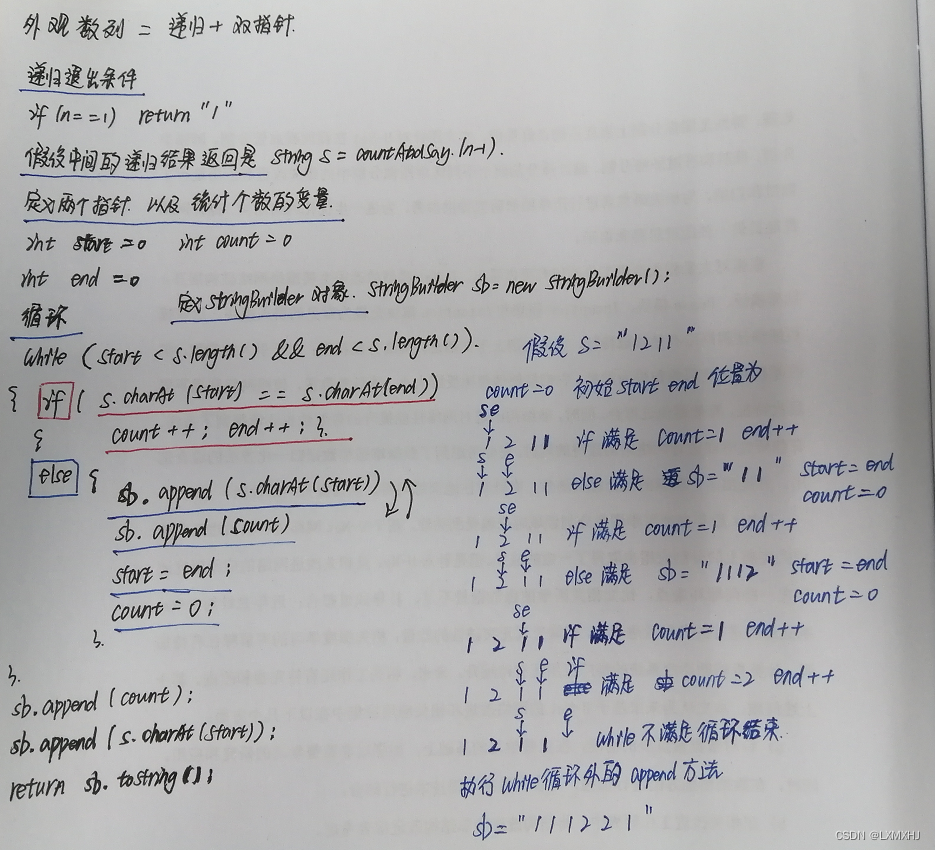 外观数列 = 递归 + 双指针.
递归退出条件
if (n==1) return "1"
假设中间的递归结果返回是 string s = countAndSay.(n-1).
定义两个指针. 以及统计个数的变量.
int start = 0 int count = 0
int end = 0
定义 StringBuilder 对象. StringBuilder sb = new StringBuilder();
循环
while (start < s.length() && end < s.length()).
{ if ( s.charAt (start) == s.charAt(end))
{ count ++; end ++; }.
else {
sb. append (s.charAt(start))
sb. append (count)
start = end ;
count = 0;
}.
}.
sb. append (count);
sb. append ( s.charAt(start));
return sb. toString();
假设 s = "1211"
count=0 初始 start end 位置为
se
1 2 1 1 if 满足 count=1 end++
s e
1 2 1 1 else 满足 sb="11" start=end
count=0
se
1 2 1 1 if 满足 count=1 end++
s e
1 2 1 1 else 满足 sb="1112" start=end
count=0
se
1 2 1 1 if 满足 count=1 end++
s e if
1 2 1 1 满足 count=2 end++
s e
1 2 1 1 while 不满足循环结束.
执行 while 循环外的 append 方法
sb= "111221"
CSDN @LXMXHJ